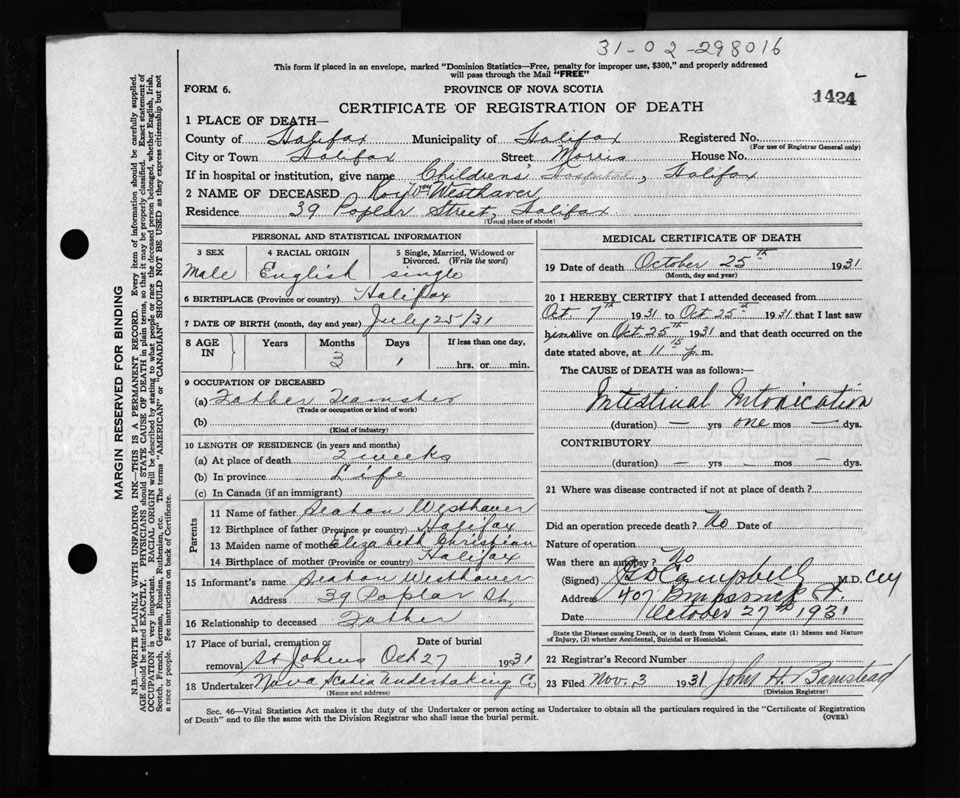 31-02-298016
This form if placed in an envelope, marked "Dominion Statistics—Free, penalty for improper use, $300," and properly addressed
will pass through the Mail "FREE"
FORM 6.
PROVINCE OF NOVA SCOTIA
1424
CERTIFICATE OF REGISTRATION OF DEATH
1 PLACE OF DEATH—
County of Halifax Municipality of Halifax Registered No.
(For use of Registrar General only)
City or Town Halifax Street Morris House No.
If in hospital or institution, give name Childrens' Hospital, Halifax
2 NAME OF DECEASED Roy Wm Westhaver
Residence 39 Poplar Street, Halifax
(Usual place of abode)
PERSONAL AND STATISTICAL INFORMATION
3 SEX 4 RACIAL ORIGIN 5 Single, Married, Widowed or Divorced. (Write the word)
Male English single
6 BIRTHPLACE (Province or country) Halifax
7 DATE OF BIRTH (month, day and year) July 25/31
8 AGE IN Years Months Days If less than one day,
3 1 hrs. or min.
9 OCCUPATION OF DECEASED
(a) Father Teamster
(Trade or occupation or kind of work)
(b)
(Kind of industry)
10 LENGTH OF RESIDENCE (in years and months)
(a) At place of death 2 weeks
(b) In province Life
(c) In Canada (if an immigrant)
Parents
11 Name of father Seaton Westhaver
12 Birthplace of father (Province or country) Halifax
13 Maiden name of mother Elizabeth Christian
14 Birthplace of mother (Province or country) Halifax
15 Informant's name Seaton Westhaver
Address 39 Poplar St,
16 Relationship to deceased Father
17 Place of burial, cremation or removal Date of burial
St Johns Oct 27 1931
18 Undertaker Nova Scotia Undertaking Co
(Name and address)
MEDICAL CERTIFICATE OF DEATH
19 Date of death October 25th 1931
(Month, day and year)
20 I HEREBY CERTIFY that I attended deceased from
Oct. 7th 1931 to Oct 25th 1931 that I last saw
him alive on Oct 25th 1931 and that death occurred on the
date stated above, at 11 15 p. m.
The CAUSE of DEATH was as follows:
Intestinal Intoxication
(duration) — yrs one mos — dys.
CONTRIBUTORY
(duration) — yrs — mos — dys.
21 Where was disease contracted if not at place of death?
Did an operation precede death? No Date of
Nature of operation
Was there an autopsy? No
(Signed) Campbell M.D.
Address 407 St.
Date October 27th 1931
State the Disease causing Death, or in death from Violent Causes, state (1) Means and Nature
of Injury, (2) whether Accidental, Suicidal or Homicidal.
22 Registrar's Record Number
23 Filed Nov. 3 1931 John H. Barnstead
(Division Registrar)
Sec. 46—Vital Statistics Act makes it the duty of the Undertaker or person acting as Undertaker to obtain all the particulars required in the "Certificate of Registration
of Death" and to file the same with the Division Registrar who shall issue the burial permit.
(OVER)
MARGIN RESERVED FOR BINDING
N.B.—WRITE PLAINLY WITH UNFADING INK—THIS IS A PERMANENT RECORD. Every item of information should be carefully supplied.
AGE should be stated EXACTLY. PHYSICIANS should STATE CAUSE OF DEATH in plain terms, so that it may be properly classified. Exact statement of
OCCUPATION is very important. RACIAL ORIGIN will be described by stating to what people or race the deceased person belonged, whether English, Irish,
Scotch, French, German, Russian, Ruthenian, etc. The terms "AMERICAN" or "CANADIAN" SHOULD NOT BE USED as they express citizenship but not
a race or people. See instructions on back of Certificate.